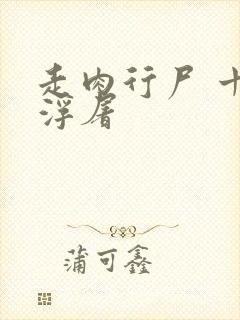 走肉行尸
浮屠
蒲可鑫